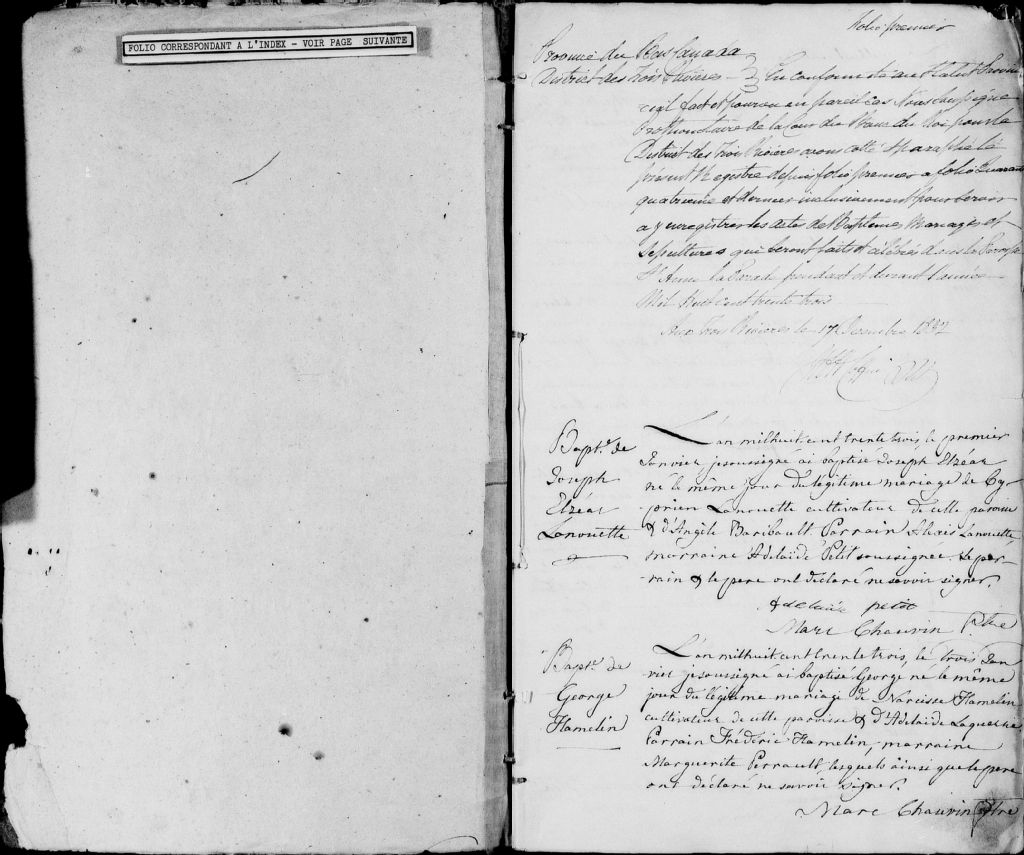 FOLIO CORRESPONDANT A L'INDEX - VOIR PAGE SUIVANTE
folio premier
Province du Bas Canada
District des Trois Rivières - En conformité au Statut Provin
cial fait et pourvu en pareil cas Nous Soussigné
Protonotaire de la Cour du Banc du Roi pour le
District des Trois Rivières avons cotté & paraphé le
présent Registre depuis folio premier a folio Quarante
quatrieme et dernier inclusivement pour servir
a y enregistrer les actes de Baptêmes Mariages et
Sepultures qui seront faits et célébrés dans la Paroisse
Ste Anne la Perade pendant et durant l'année
Mil Huit cent trente trois
Aux Trois Rivieres le 17 Decembre 1832
Bapt. de
Joseph
Elzéar
Lanouette
L'an mil huit cent trente trois, le premier
Janvier, je soussigné ai baptisé Joseph Elzéar
né le même jour du légitime mariage de Cy-
-prien Lanouette cultivateur de cette paroisse
& d'Angèle Baribault. Parrain Alexis Lanouette
marraine Adelaïde Petit soussignée. Le par-
-rain & le pere ont déclaré ne savoir signer.
Adelaide petit
Marc Chauvin Ptre
Bapt. de
George
Hamelin
L'an mil huit cent trente trois, le trois Jan
vier je soussigné ai baptisé George né le même
jour du légitime mariage de Narcisse Hamelin
cultivateur de cette paroisse & d'Adelaide Laquerre
Parrain Fréderic Hamelin, marraine
Marguerite Perrault, lesquels ainsi que le pere
ont déclaré ne savoir signer.
Marc Chauvin Ptre